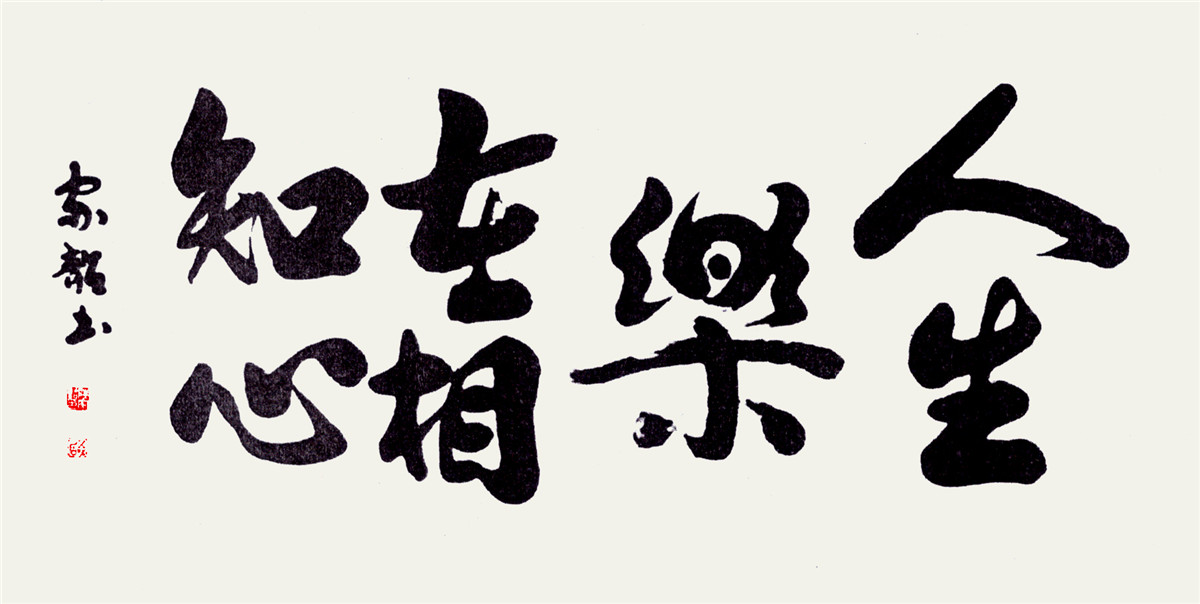 人生
樂
在相
知心
家
書